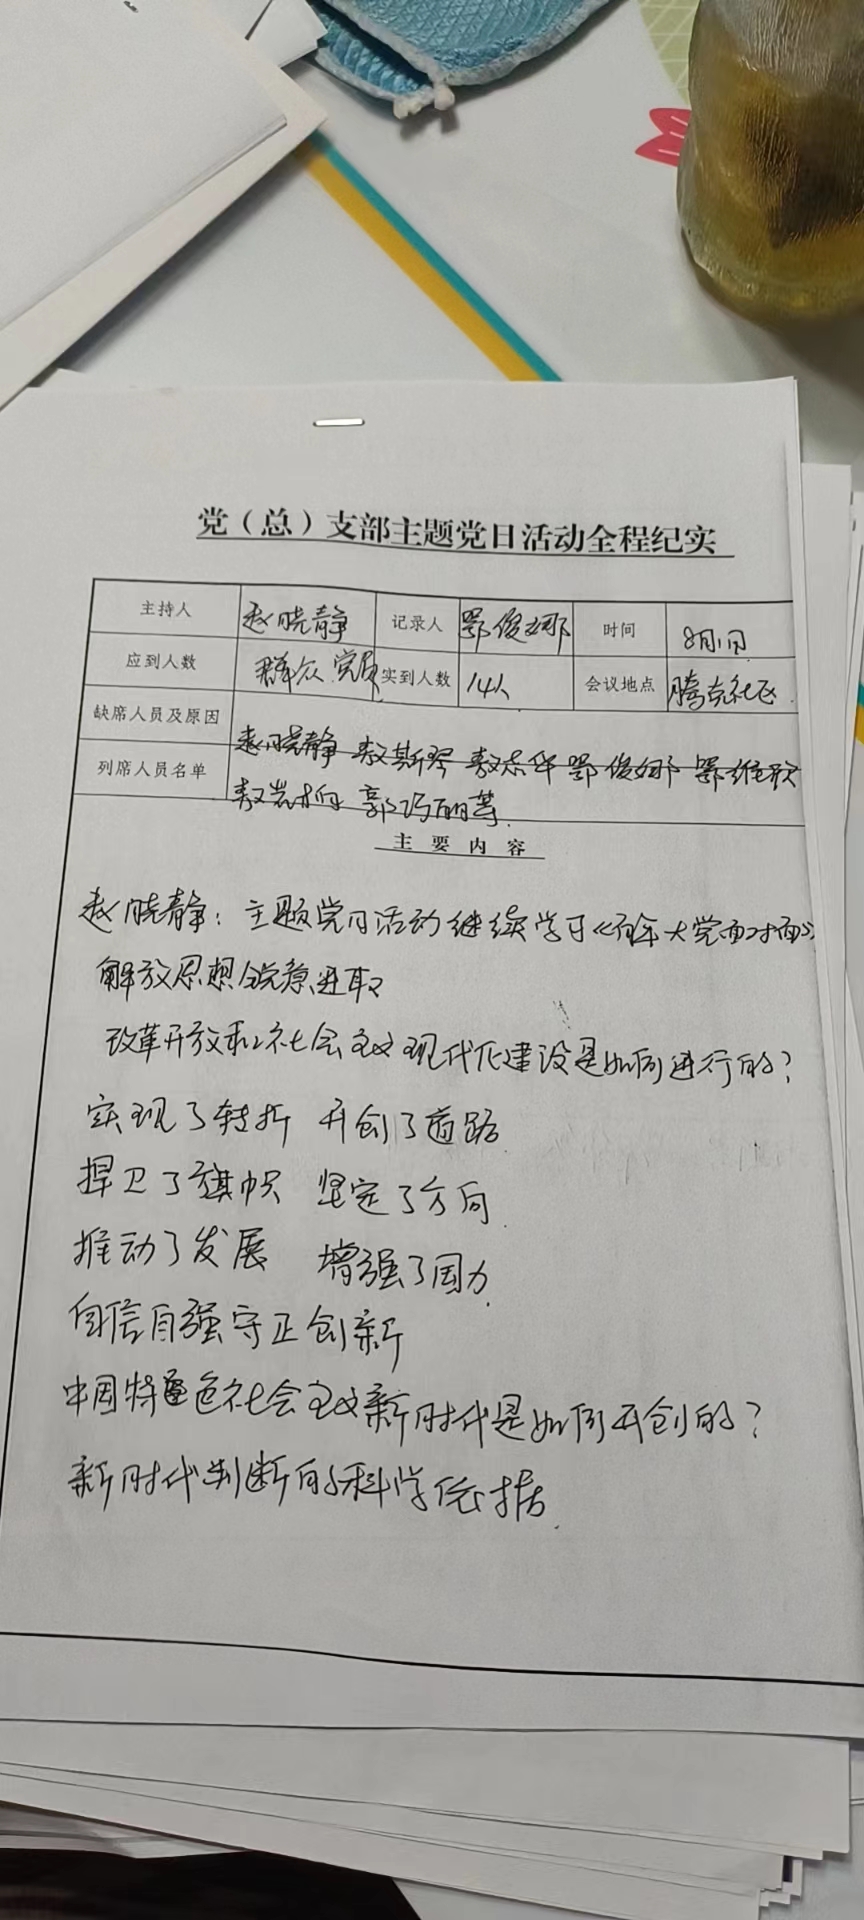 党（总）支部主题党日活动全程纪实
主持人 赵晓静 记录人 鄂俊娜 时间 8月1日
应到人数 群众 党员 实到人数 14人 会议地点 腾克社区
缺席人员及原因
赵晓静 敖斯琴 敖志华 鄂俊娜 鄂维欣
列席人员名单
郭巧丽等
主要内容
赵晓静：主题党日活动继续学习《百年大党面对面》
解放思想锐意进取
改革开放和社会主义现代化建设是如何进行的？
实现了转折 开创了道路
捍卫了旗帜 坚定了方向
推动了发展 增强了国力
自信自强守正创新
中国特色社会主义新时代是如何开创的？
新时代判断的科学依据